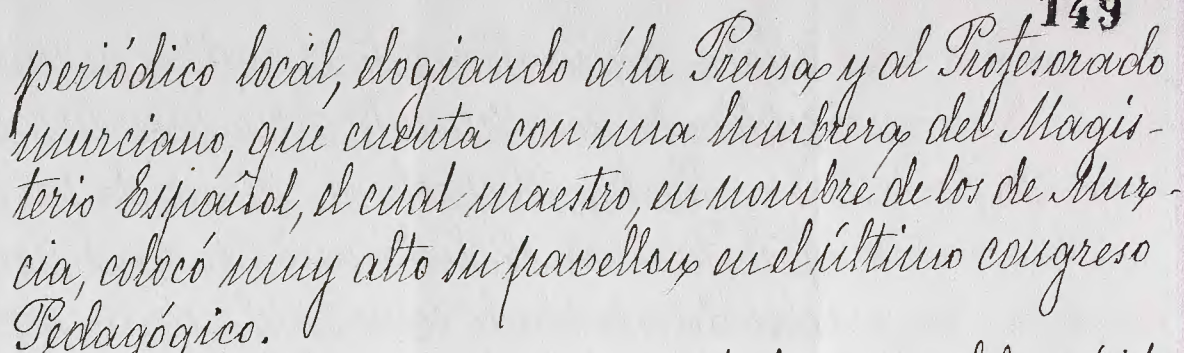 149
periódico locál, elogiando á la Prensa y al Profesorado
murciano, que cuenta con una lumbrera del Magis-
terio Español, el cual maestro, en nombre de los de Mur-
cia, colocó muy alto su pavellon en el último congreso
Pedagógico.